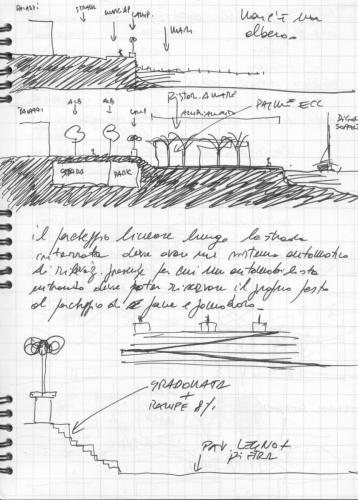 PALAZZI STRADA MARCIAP. LAMP. MARE
non c'è un
albero.
RISTOR. A MARE
AMPLIAMENTO
PALME ECC
PALAZZI ALB ALB LAMP
STRADA PARK
il parcheggio lineare lungo la strada
interrata deve avere un sistema automatico
di per cui un automobilista
entrando deve poter il proprio posto
al parcheggio di
GRADONATA
+
RAMPE 8%
PAV LEGNO +
PIETRA